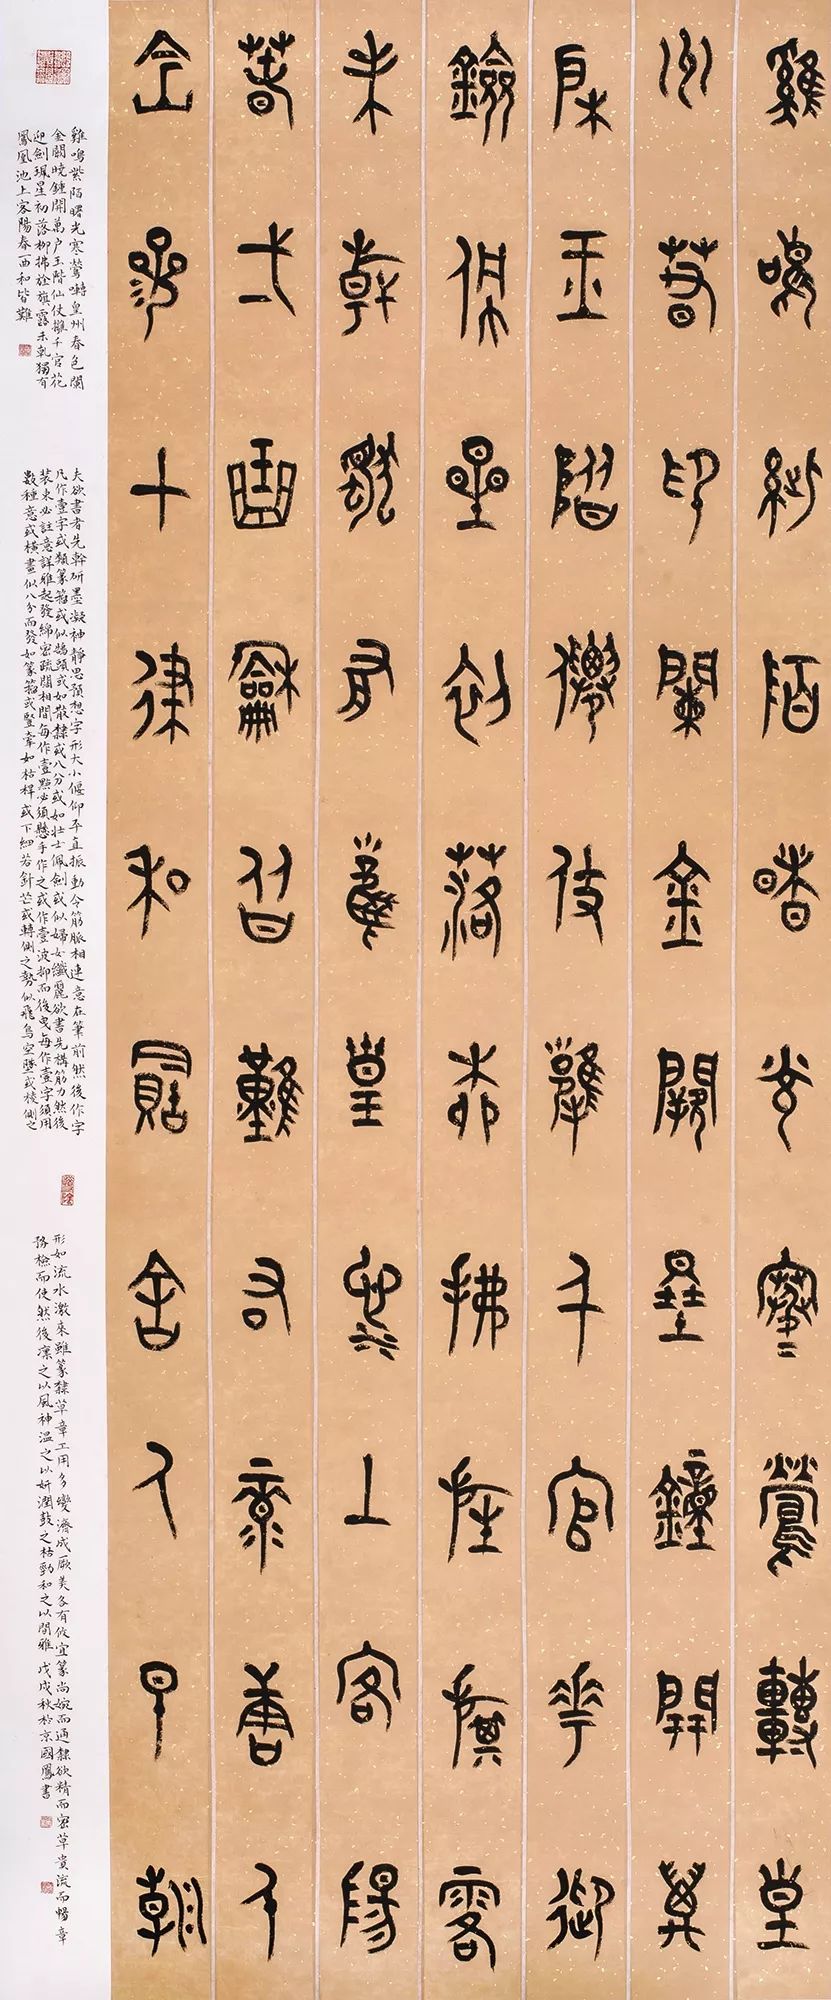 雞鳴紫陌曙光寒鶯囀皇
州春色闌金闕曉鐘開萬
戶玉階仙仗擁千官花迎
劍珮星初落柳拂旌旗露
未乾獨有鳳凰池上客陽
春弌曲龢皆難右录唐人
岑參七律和賈舍人早朝
雞鳴紫陌曙光寒鶯囀皇州春色闌
金闕曉鐘開萬戶玉階仙仗擁千官花
迎劍珮星初落柳拂旌旗露未乾獨有
鳳凰池上客陽春一曲和皆難
夫欲書者先幹研墨凝神靜思預想字形大小偃仰平直振動令筋脈相連意在筆前然後作字
凡作壹字或類篆籀或似鵠頭或如散隸或八分或如壯士佩劍或似婦女纖麗欲書先構筋力然後
裝束必註意詳雅起發綿密疏闊相間每作壹點必須懸手作之或作壹波抑而後曳每作壹字須用
數種意或橫畫似八分而發如篆籀或豎牽如枯桿或下細若針芒或轉側之勢似飛鳥空墜或棱側之
形如流水激來雖篆隸草章工用多變濟成厥美各有攸宜篆尚婉而通隸欲精而密草貴流而暢章
務檢而便然後凜之以風神溫之以妍潤鼓之枯勁和之以閒雅 戊戌秋於京國鳳書